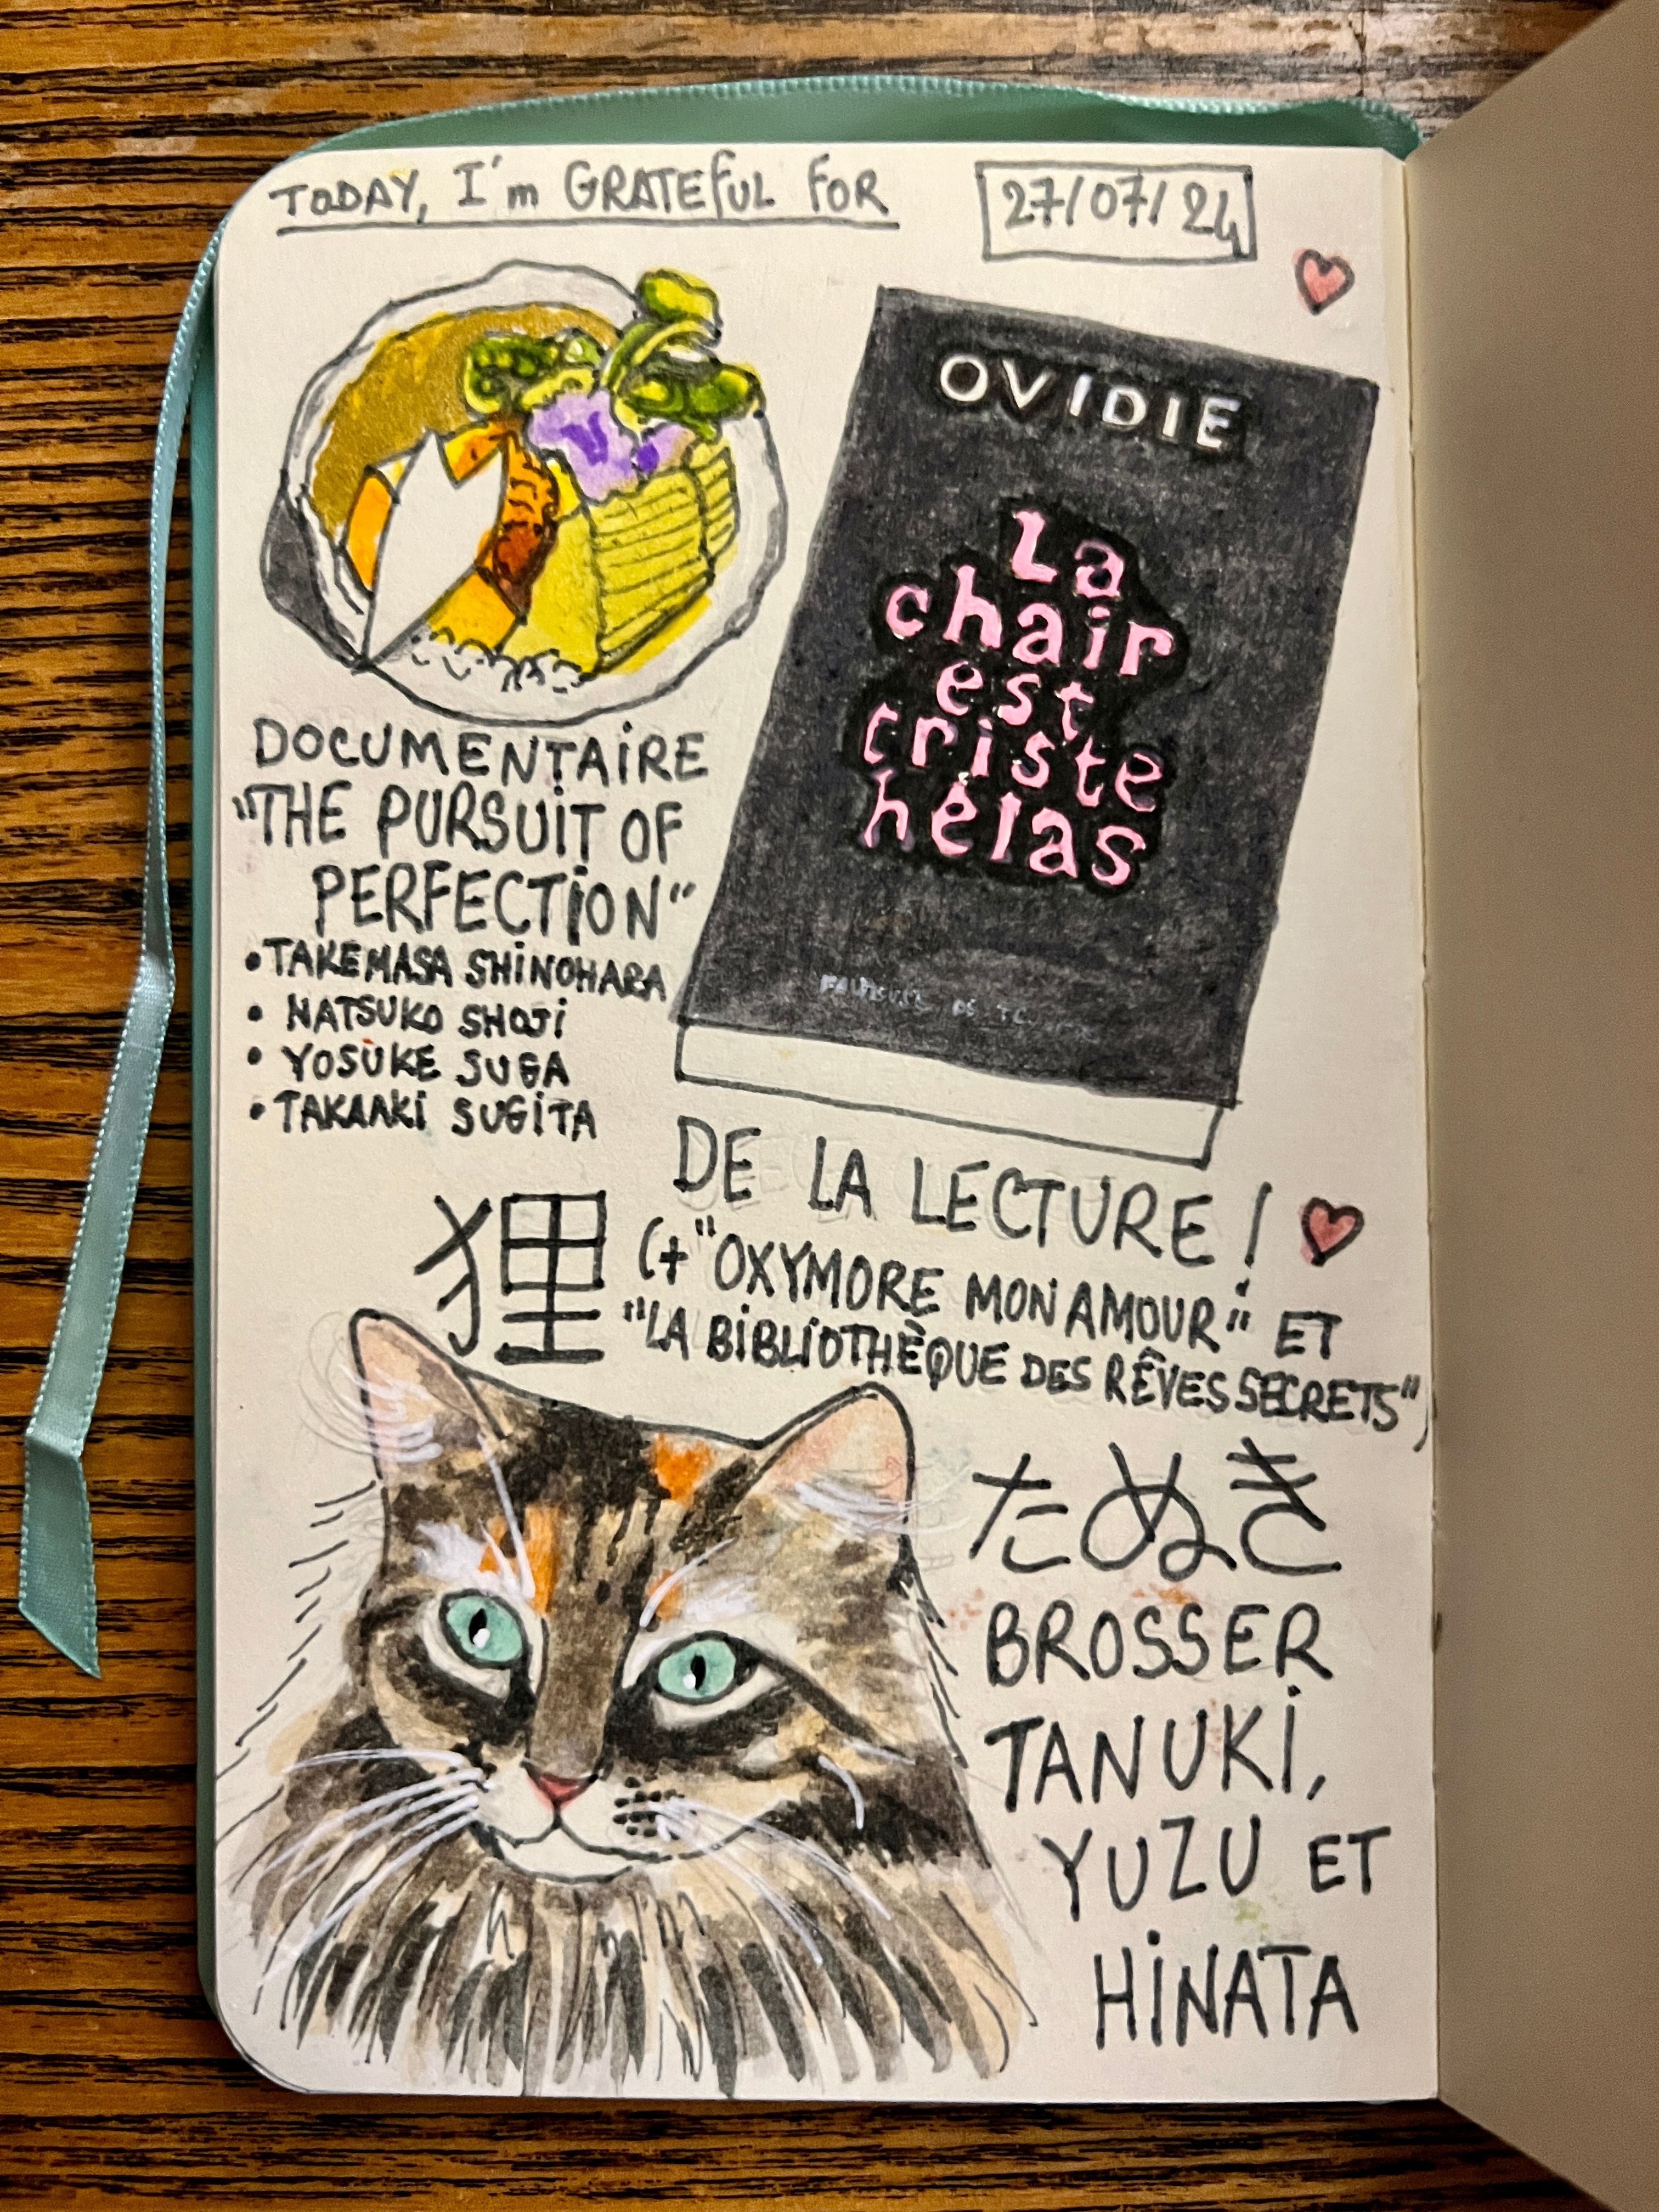 TODAY, I'm GRATEFUL FOR
27/07/24
OVIDIE
La
chair
est
triste
hélas
DOCUMENTAIRE
"THE PURSUIT OF
PERFECTION"
• TAKEMASA SHINOHARA
• NATSUKO SHOJI
• YOSUKE SUGA
• TAKAAKI SUGITA
DE LA LECTURE !
(+ "OXYMORE MON AMOUR" ET
"LA BIBLIOTHÈQUE DES RÊVES SECRETS")
狸
たぬき
BROSSER
TANUKI,
YUZU ET
HINATA